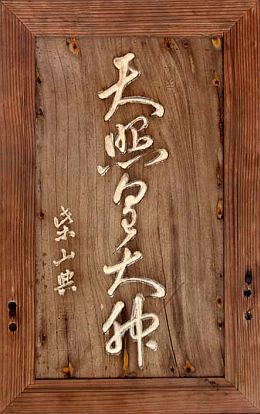 天照皇大神
柴山典